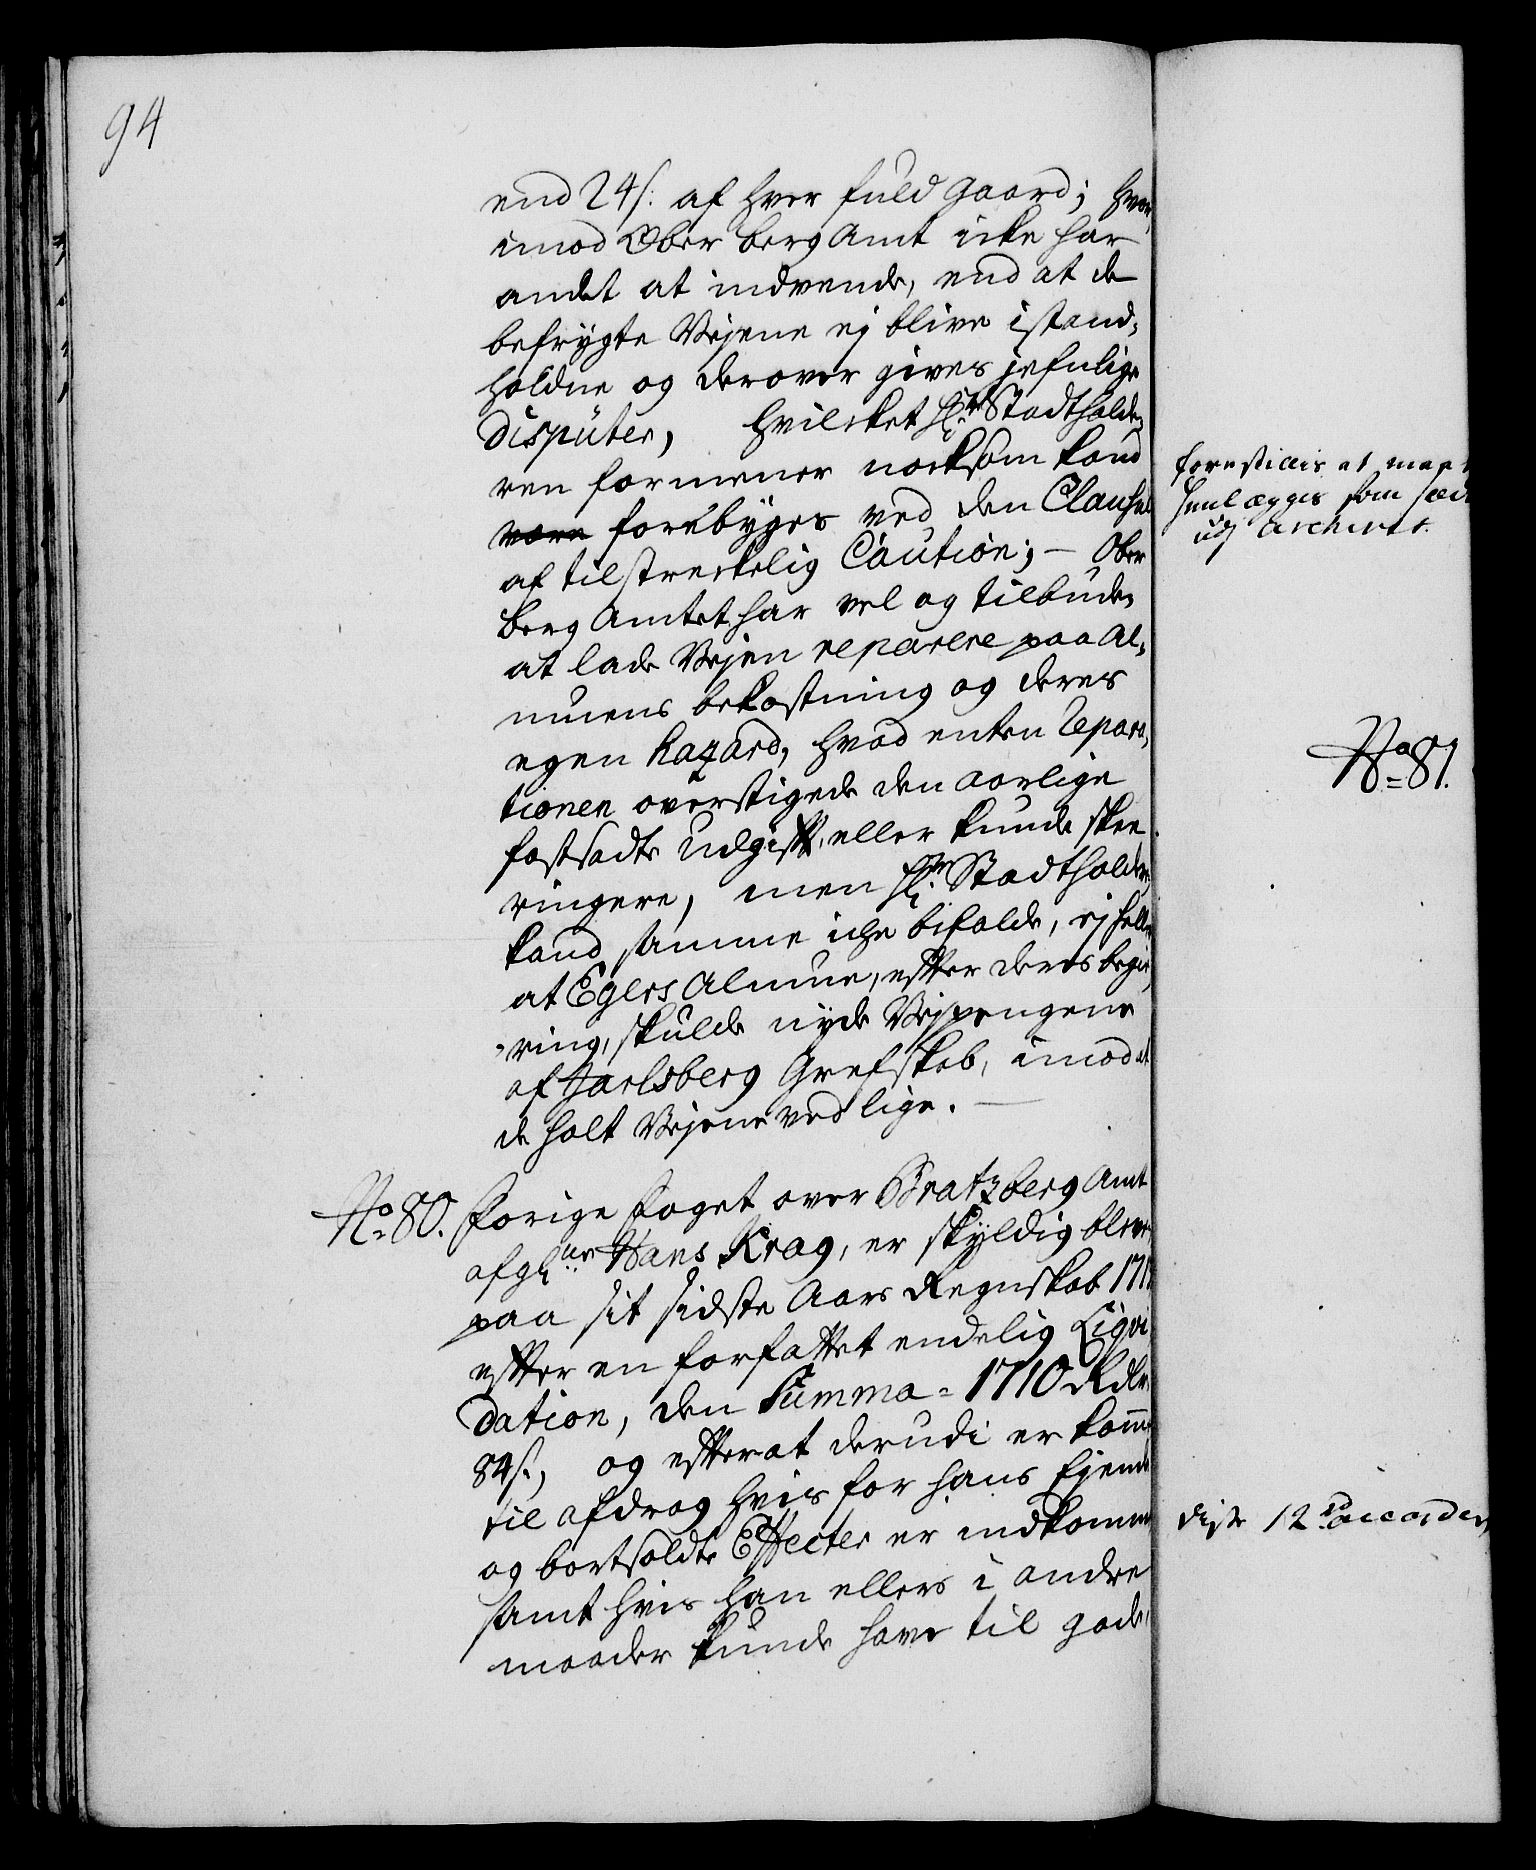 94
end 24 s: af hver fuld Gaard; hvor,
imod Ober Berg Amt icke har
andet at indvende, end at de
befrygte Vejene ej blive istand,
holdne og derover gives jefnlige
Disputer, hvilcket Hr. Stadtholde,
ren formener nocksom kand
være forebyges ved den Clausul
af tilstreckelig Caution; — Ober
Berg Amtet har vel og tilbuden
at lade Vejen reparere paa Al,
muens bekostning og deres
egen hazard, hvad enten Repara,
tionen overstigede den aarlige
fastsadte Udgifft, eller kunde skee
ringere, men Hr. Stadtholder
kand samme iche bifalde, ej heller
at Egers Almue, effter deres begie,
ring, skulde nyde Vejpengene
af Jarlsberg Grefskab, imod at
de holt Vejene ved lige. —
No. 80. Forige Foget over Bratzberg Amt
afgl. Hans Krag, er skyldig bleven
paa sit sidste Aars Regnskab 171
effter en forfattet endelig Liqvi
dation, den Summa = 1710 Rdlr.
84 s., og effterat derudi er kommen
til afdrag hvis for hans Ejende
og bortsoldte Effecter er indkommen
samt hvis han ellers i andre
maader kunde have til gode,
forestilles at maat
henlægges som
udj Archivet.
No. 81.
diste 12